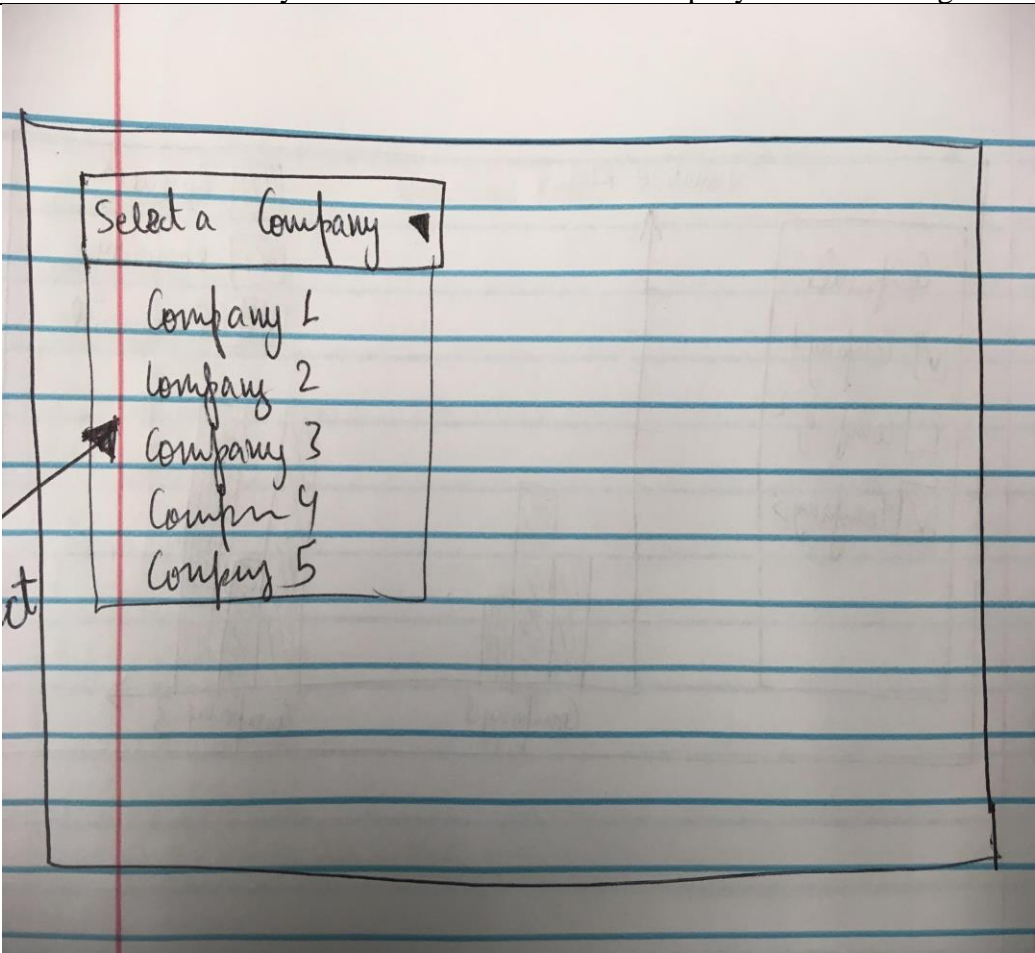 Select a Company
Company 1
Company 2
Company 3
Company 5
ct